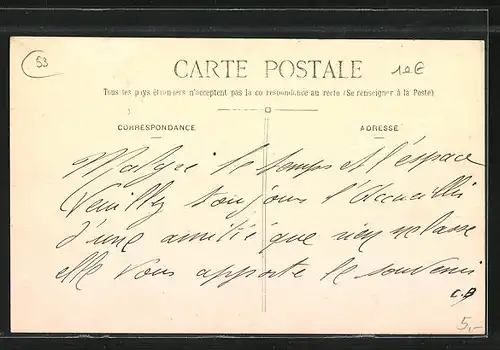 53
CARTE POSTALE
10E
Tous les pays étrangers n'acceptent pas la correspondance au recto (Se renseigner à la Poste)
CORRESPONDANCE
ADRESSE
Malgré le temps et l'espace
Veuillez toujours l'accueillir
d'une amitié que rien ne lasse
elle vous apporte le souvenir
C.B
5,-